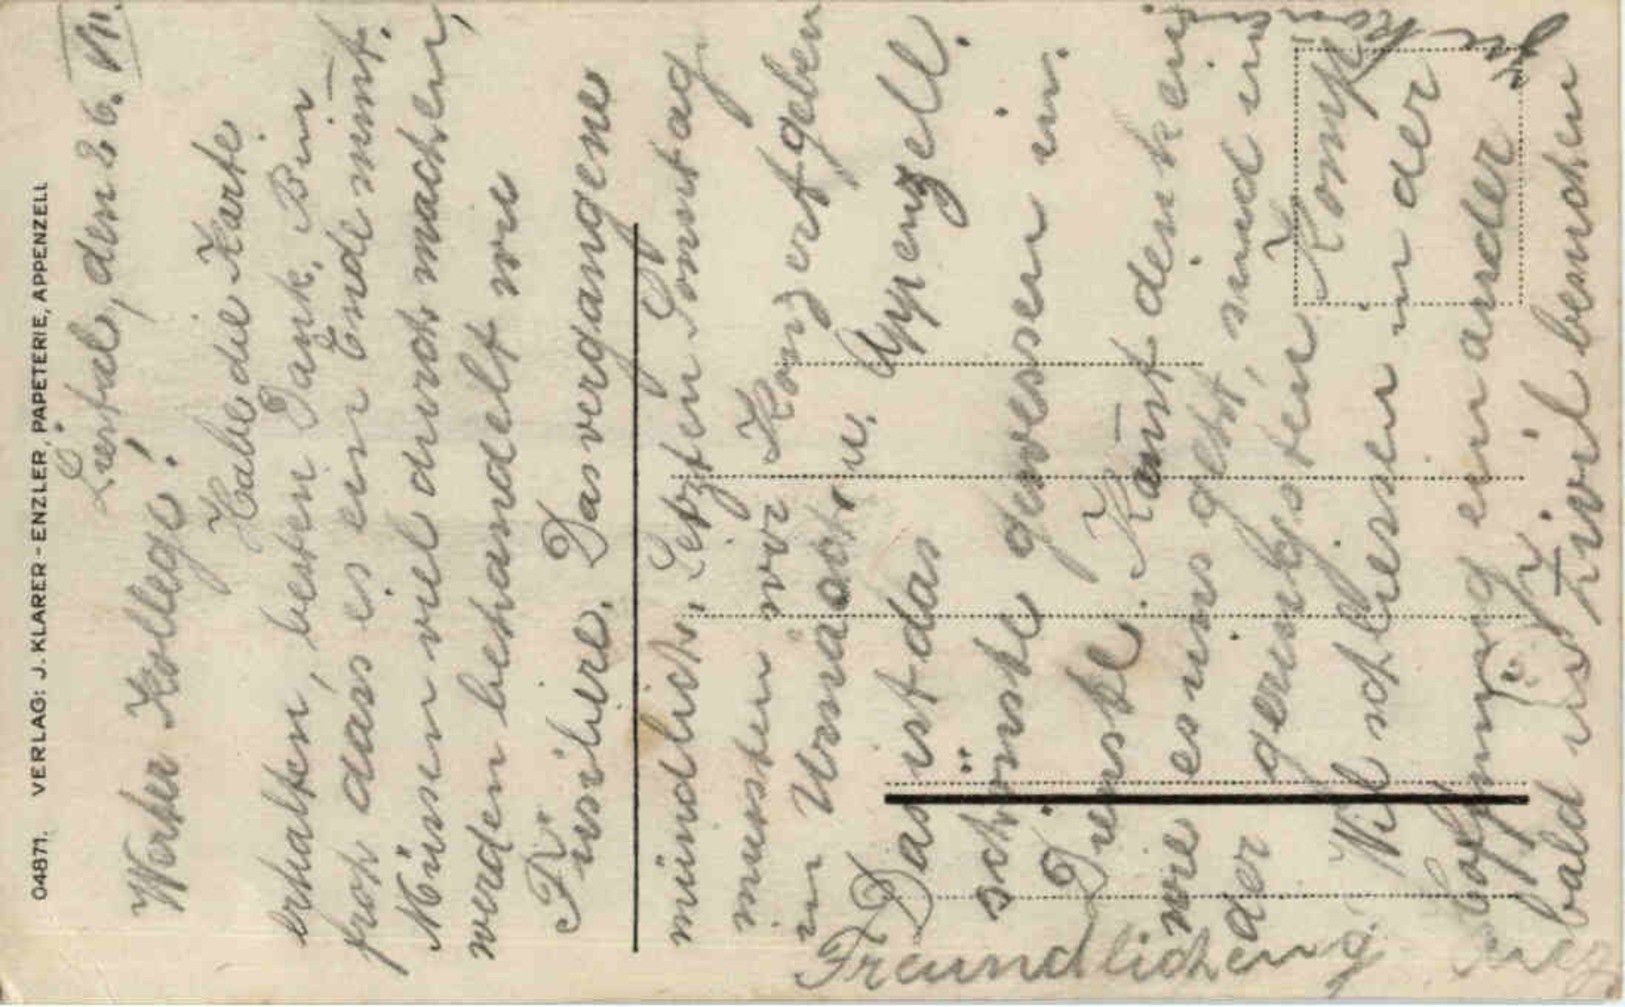 04871. VERLAG: J. KLARER-ENZLER, PAPETERIE, APPENZELL
Liestal, den 26. VII.
Werter Kollege!
Habe die Karte
erhalten, besten Dank. Bin
froh dass es ein Ende nimt.
Müssen viel durch machen,
werden behandelt wie
Füsiliere. Das vergangene
mündlich, Letzten Sonntag
mussten wir Konzert geben
in Urnäsch u. Appenzell.
Das ist das
schönste gewessen im
Dienste. Kanst denken
wie es uns geht, sind in
der gerinsten Komp.
Wil schliesen in der
Hoffnung ein ander
bald in Zivil besuchen
Freundlichen